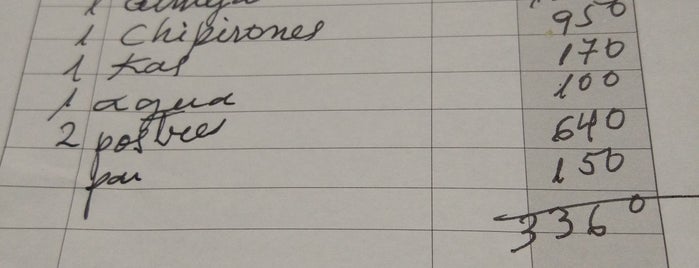 1 almeja
1 Chipirones 950
1 Kas 170
1 agua 100
2 postres 640
pan 150
3360